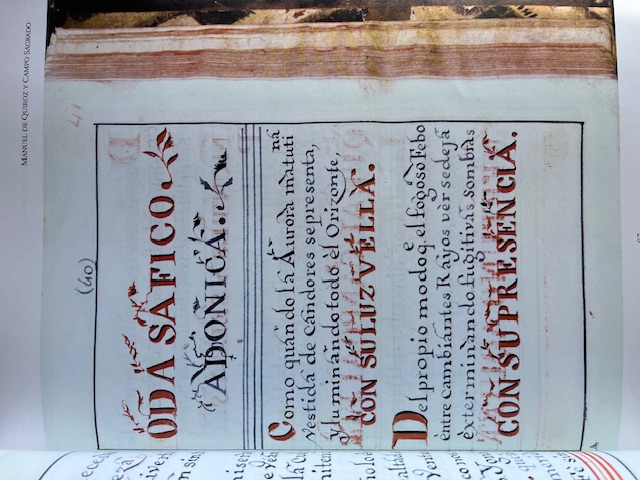 MANUEL DE QUIROZ Y CAMPO SAGRADO
41
(40)
ODA SAFICO
ADONICA.
Como quando la Aurora matuti
na
Vestida de Candores se presenta,
Y luminando todo el Orizonte,
CON SU LUZ VELLA.
Del propio modo q.e el fogoso Febo
entre Cambiantes Rayos ver se deja
exterminando fugitivas Sombras
CON SU PRESENCIA.